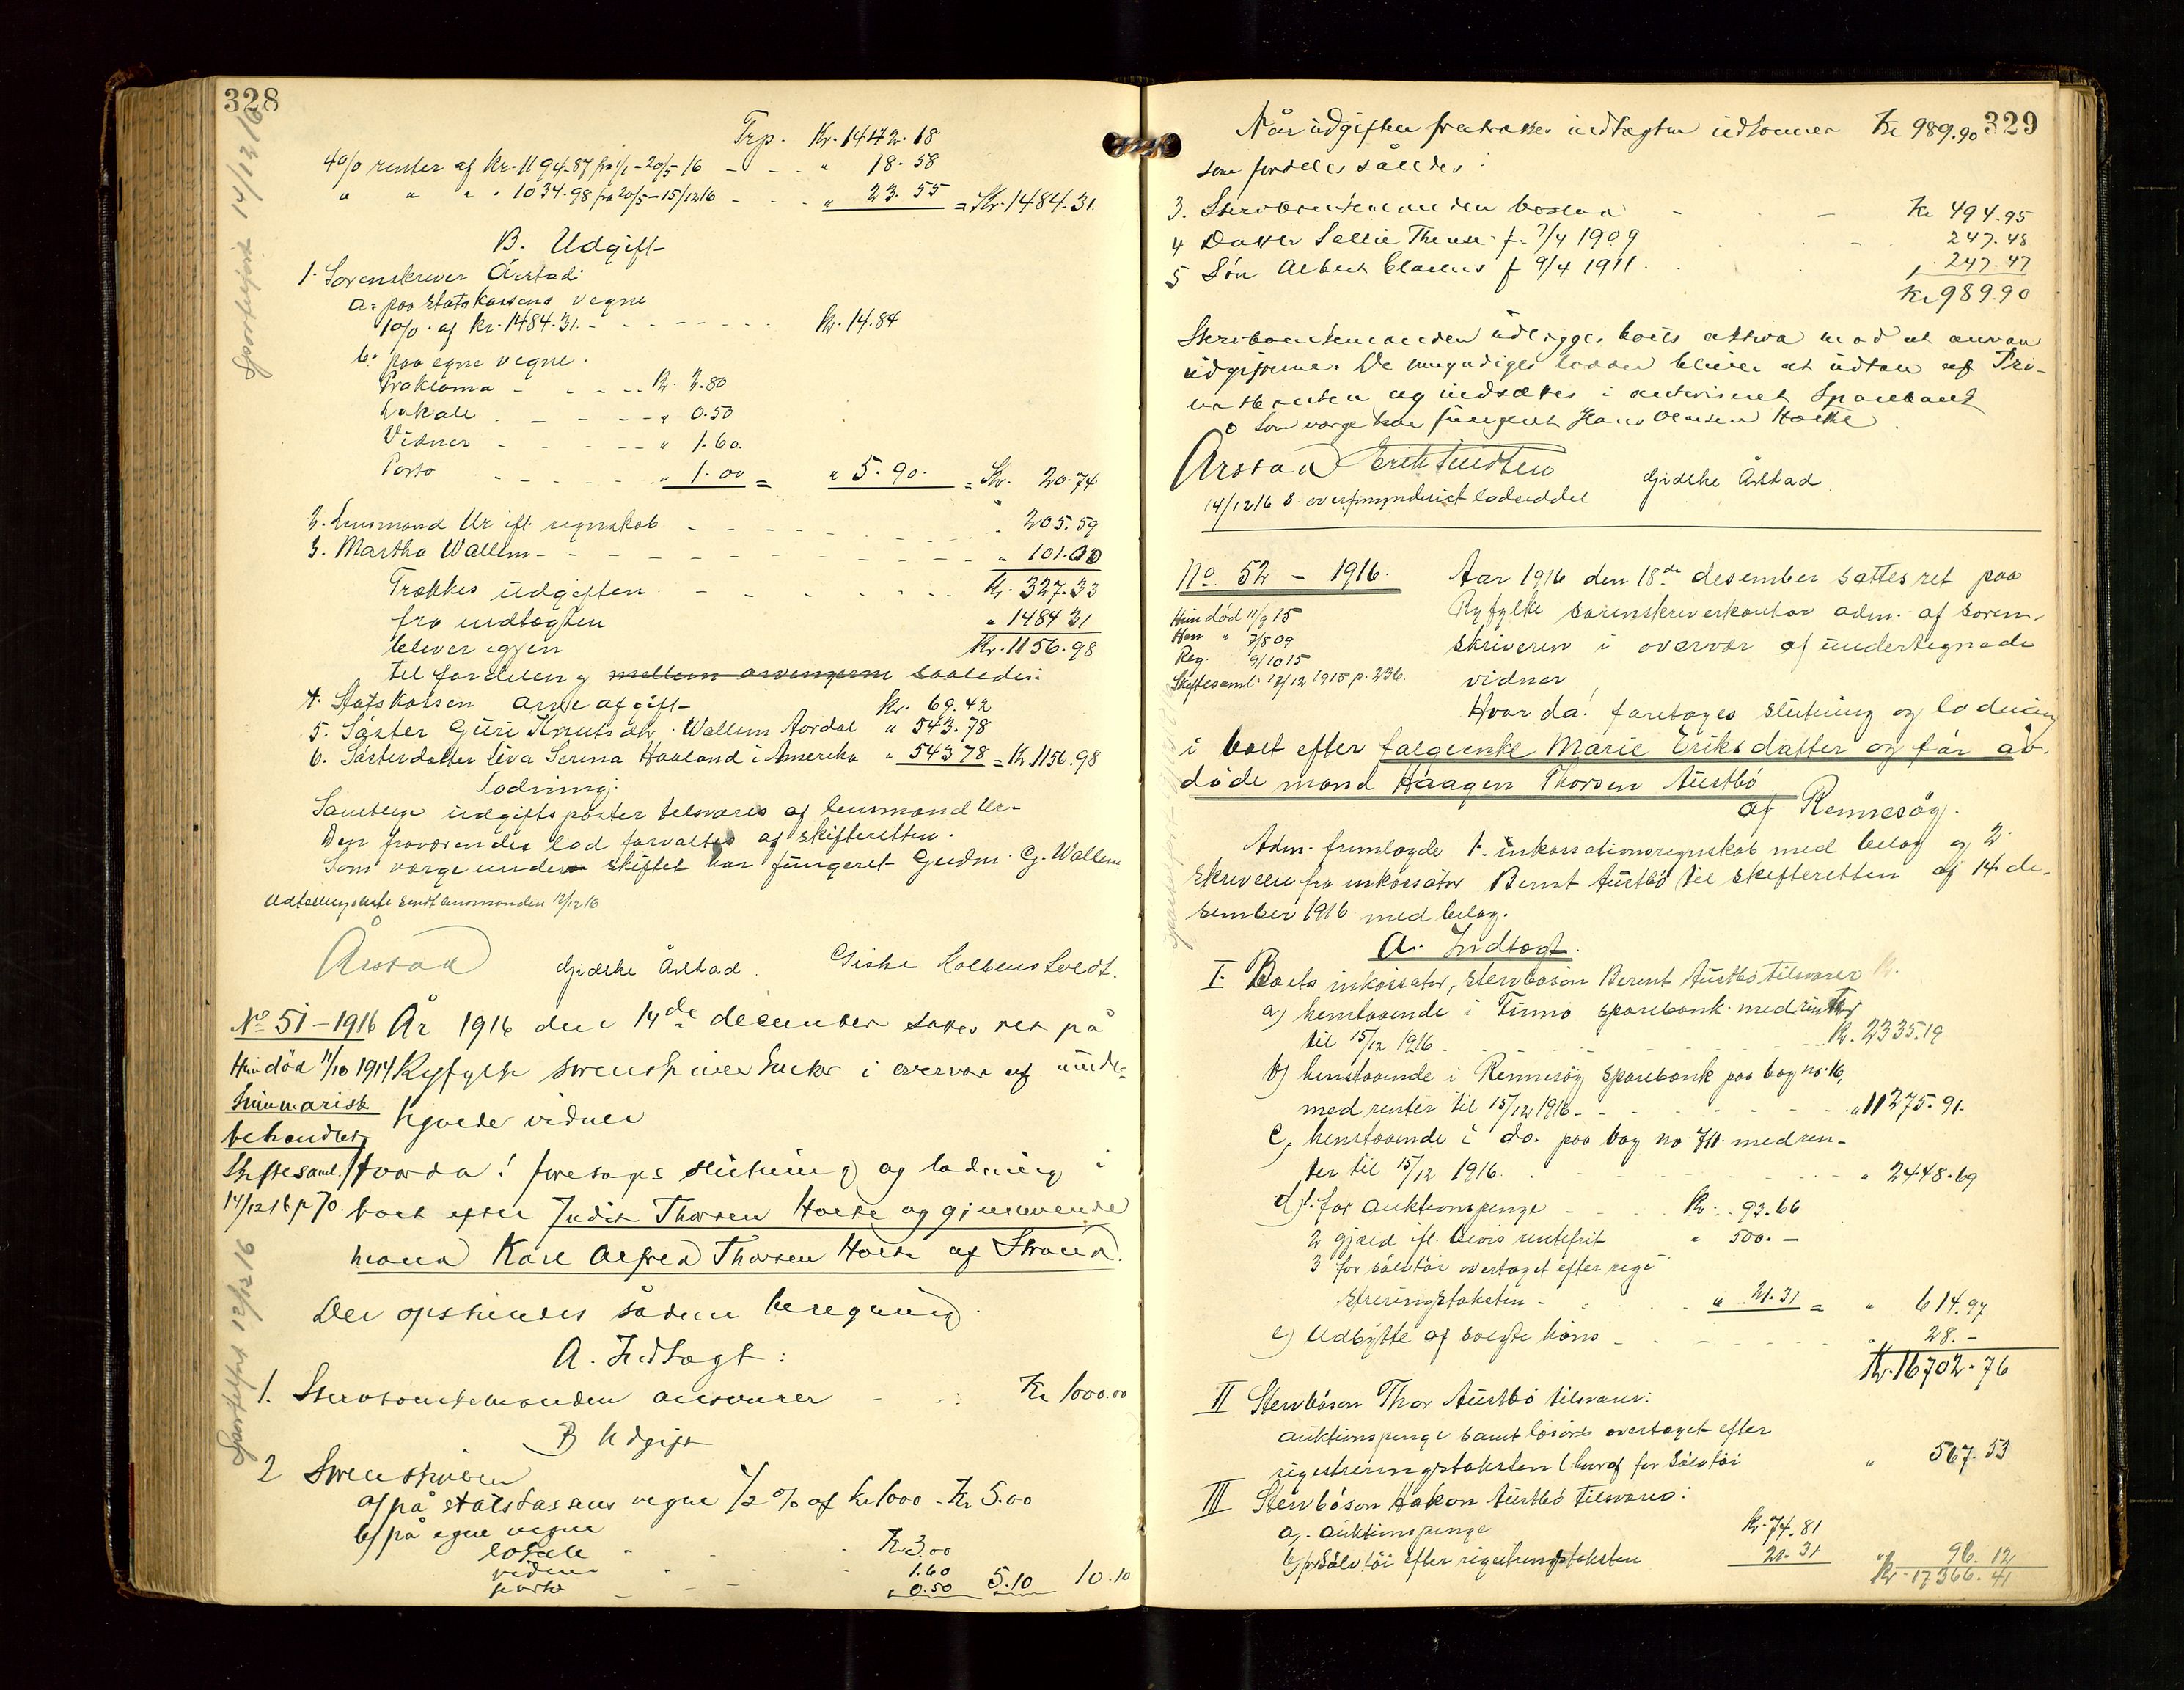 328
Trp. Kr. 1442.18
4% renter af kr. 1194.87 fra 1/1-20/5-16 - - - " 18.58
" " " " 1034.98 fra 20/5-15/12 16 - - - " 23.55 = Kr. 1484.31.
B. Udgift
1. Sorenskriver Årstad:
a. paa statskassens vegne
1% af kr. 1484.31. - - - - - - Kr. 14.84
b. paa egne vegne.
Proklama - - - - Kr. 2.80
Lokale - - - - " 0.50
Vidner - - - - " 1.60.
Porto - - - - " 1.00 = " 5.90. = Kr. 20.74
2. Lensmand Ur ifl. regnskab - - - - " 205.59
3. Martha Wallem - - - - " 101.00
Trækkes udgiften - - - - Kr. 327.33
fra indtægten " 1484 31
blever igjen Kr. 1156.98
til fordeling mellem arvingerne saaledes:
4. Statskassen arveafgift Kr. 69.42
5. Søster Guri Knutsdtr. Wallem Aardal " 543.78
6. Søsterdatter Liva Serina Haaland i Amerika " 543 78 = Kr. 1156.98
Lodning:
Samtlige udgiftsposter tilsvares af lensmand Ur.
Den fraværendes lod forvaltes af skifteretten.
Som værge under skiftet har fungeret Gudm. G. Wallem
Udtællingsliste sendt lensmanden 12/12 16
Årstad Gjidske Årstad. Giske Kolbenstvedt.
Sportelført 14/12 16
No 51-1916 År 1916 den 14de december sattes ret på
Hun død 11/10 1914 Ryfylke sorenskriverkontor i overvær af unde-
Summarisk tegnede vidner
behandlet
Skiftesaml. Hvorda! foretoges slutning og lodning i
14/12 16 p 70. boet efter Judit Thorsen Holte og gjenlevende
mand Karl Alfred Thorsen Holte af Strand.
Der opstilledes sådan beregning.
A. Indtægt:
1. Stervboenkemanden ansvarer - - Kr 1000.00
B Udgift
2 Sorenskriveren
a/ på statskassens vegne 1/2 % af kr 1000 - Kr 5.00
b/ på egne vegne
lokale - - Kr 3.00
vidner 1.60
porto - - " 0.50 5.10 10.10
Sportelført 12/12 16
329
Når udgiften fratrækkes indtægten udkommer Kr 989.90
som fordeles således:
3. Stervboenkemanden boslod - - Kr 494.95
4 Datter Sallie Therese f. 7/4 1909 247.48
5 Søn Albert Clarens f 9/4 1911. 247.47
Kr 989.90
Stervboenkemanden udlægges boets aktiva mod at ansvare
udgifterne. De umyndiges lodder bliver at udtage af Pri-
og indsættes i Sparebank
Som værge har fungeret Hans Olausen Holte.
Årstad Erik Knudsen Gjidske Årstad.
14/12 16 S. overformynderiet lodseddel
No. 52 - 1916. Aar 1916 den 18de desember sattes ret paa
Hun død 11/9 15 Ryfylke sorenskriverkontor adm. af soren-
Han " 7/8 09 skriveren i overvær af undertegnede
Reg. 9/10 15
Skiftesaml. 13/12 1915 p. 236. vidner
Hvor da! foretoges slutning og lodning
i boet efter folgeenke Marie Eriksdatter og før av-
døde mand Haagen Thorsen Austbø
af Rennesøy.
Adm. fremlagde 1. inkassationsregnskab med belag og 2
skrivelse fra inkassator Bernt Austbø til skifteretten af 14 de-
sember 1916 med belag.
A. Indtægt.
I. Boets inkassator, stervbosøn Berent Austbø tilsvarer
a) henstaaende i Finnø sparebank med renter
til 15/12 1916. - - - - Kr. 2335.19
b) henstaaende i Rennesøy sparebank paa bog no. 16,
med renter til 15/12 1916 - - - - " 11275.91.
c, henstaaende i do. paa bog no 711 med ren-
ter til 15/12 1916. - - - - " 2448.69
d) 1. for auktionspenge - - Kr. 93.66
2 gjæld ifl. bevis rentefrit " 500.-
3 for sølvtøi overtaget efter regi-
streringstaksten - " 21.31 = " 614.97
e) Udbytte af solgte høns - - - " 28.-
Kr. 16702.76
II Stervbosøn Thor Austbø tilsvarer:
auktionspenge samt løsøre overtaget efter
registreringstaksten (hvoraf for sølvtøi " 567.53
III Stervbosøn Hakon Austbø tilsvarer:
a). auktionspenge Kr. 74.81
b) for sølvtøi efter registreringstaksten 21.31 " 96.12
Kr. 17366.41